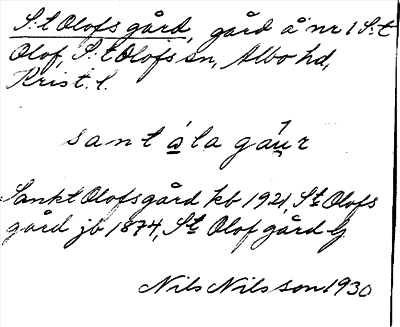 S:t Olofs gård, gård å nr 1 S:t
Olof, S:t Olofs sn, Albo hd,
Krist. l.
sant o̱la gáu̱r
Sankt Olofsgård kb 1921, St Olofs
gård jb 1874, St Olof gård
Nils Nilsson 1930